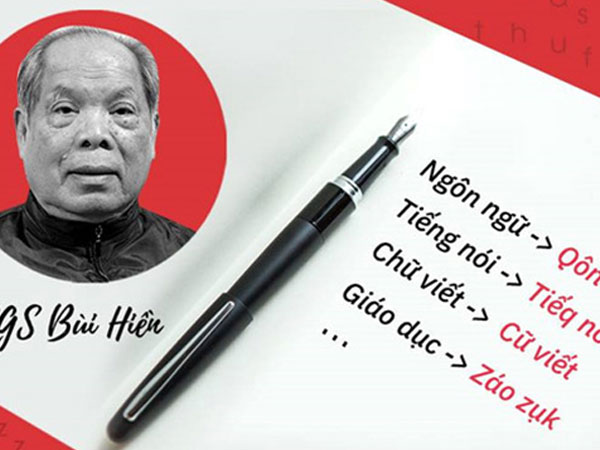 GS Bùi Hiền
Ngôn ngữ -> Qôn
Tiếng nói -> Tiếq
Chữ viết -> Cữ viết
Giáo dục -> Záo zụk
...